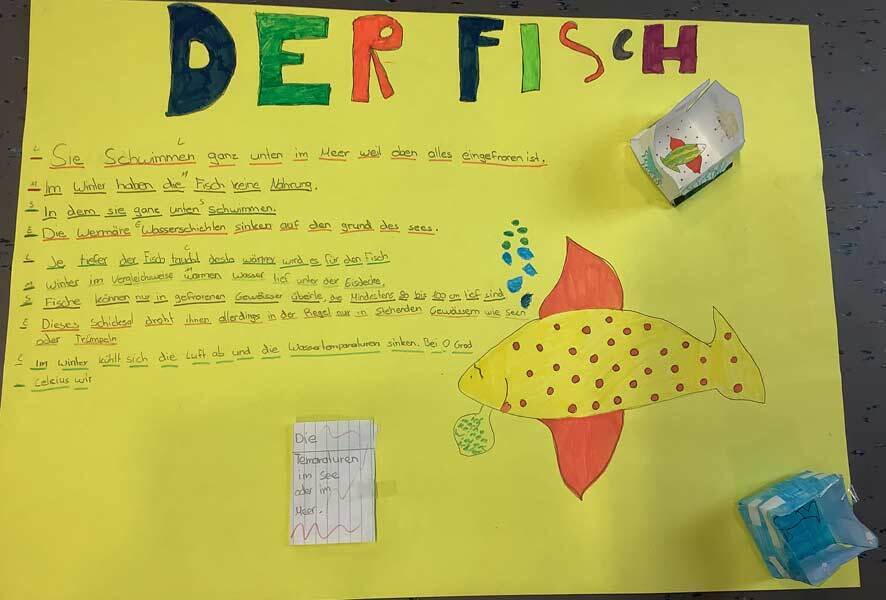 DER FISCH
Sie Schwimmen ganz unten im Meer weil oben alles eingefroren ist.
Im Winter haben die Fisch keine Nahrung.
In dem sie ganz unten Schwimmen.
Die Wermäre Wasserschichten sinken auf den grund des sees.
Je tiefer der Fisch taucht desto wärmer wird es für den Fisch
Winter im Vergleichweise warmen Wasser tief unter der Eisdecke.
Fische können nur in gefrorenen Gewässer die Mindestens 80 bis 100 cm tief sind
Dieses Schicksal droht ihnen allerdings in der Regel nur in stehenden Gewässern wie seen
oder Trümpeln
Im Winter kühlt sich die Luft ab und die Wassertemparaturen sinken. Bei 0 Grad
Celcius wir
Die
Temaraturen
im See
oder im
Meer.